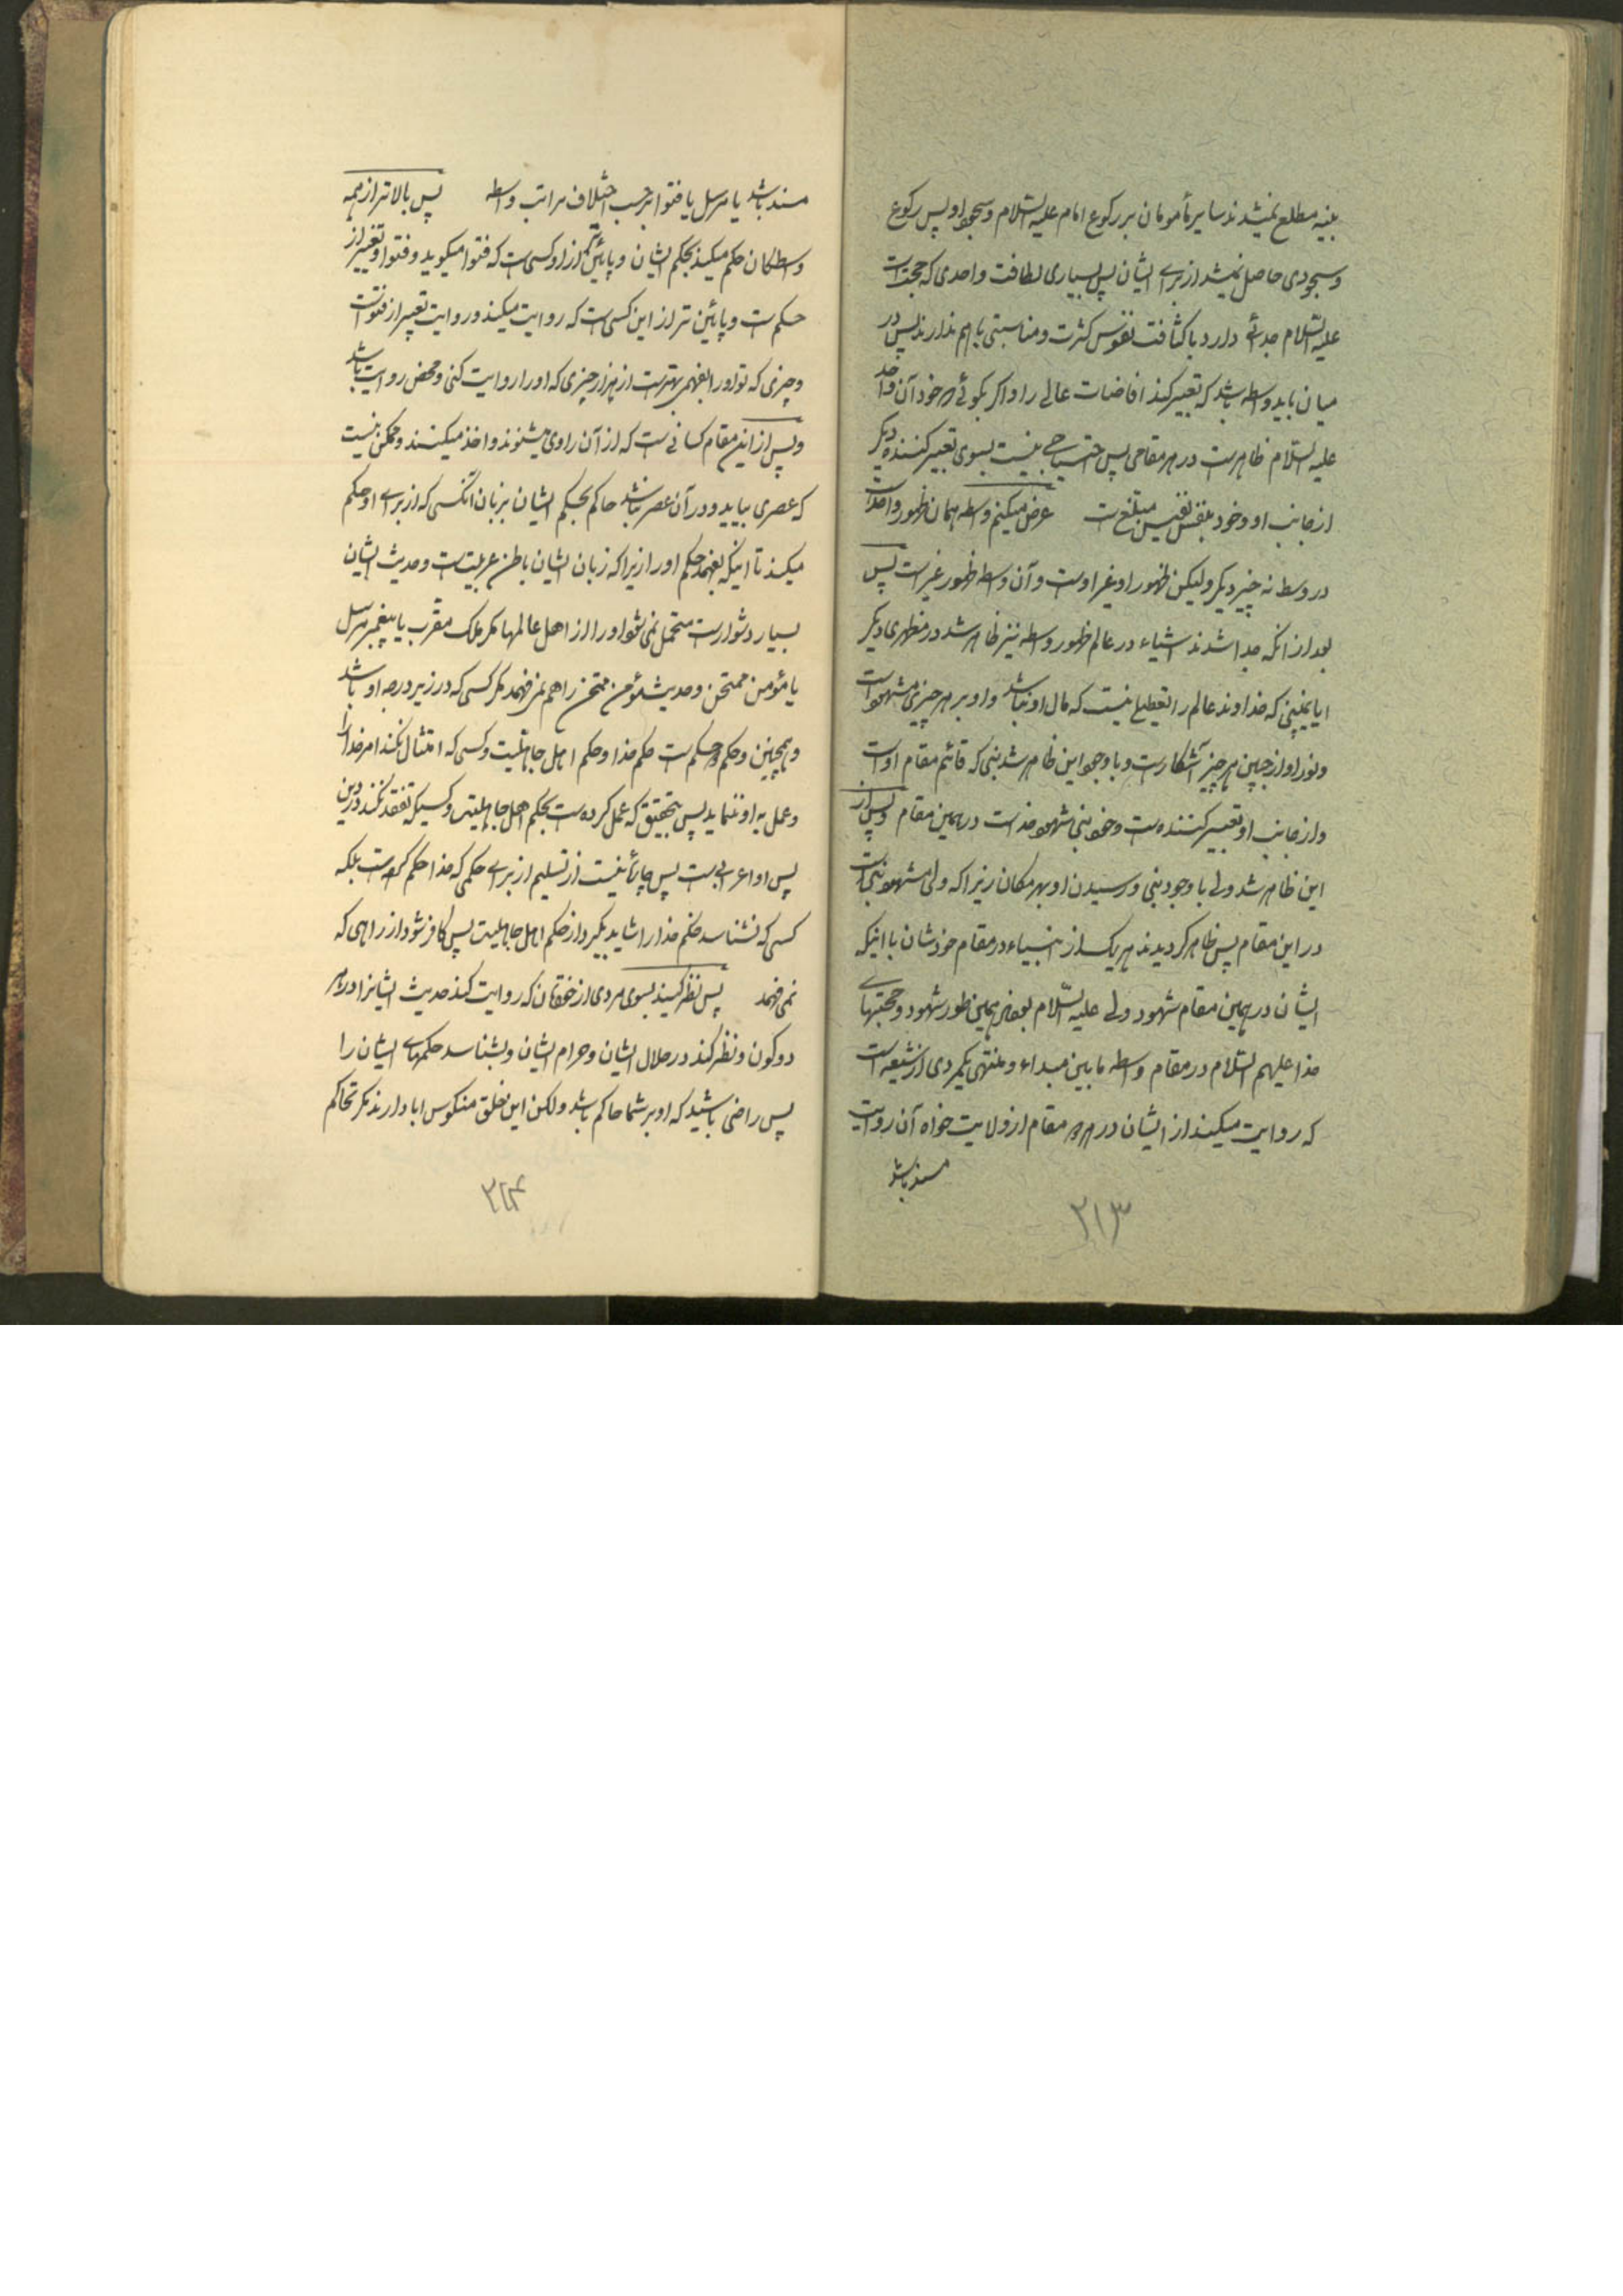 بنیه مطلع نمیشدند سایر مأمومان بر رکوع امام علیه السلام و سجود او پس رکوع
و سجودی حاصل نمیشد از برای ایشان پس بسیاری لطافت واحدی که حجت است
علیه السلام جدائی دارد با کثافت نفوس کثرت و مناسبتی باهم ندارند پس در
میان باید واسطه باشد که تعبیر کند افاضات عالی را و اگر بگوئی خود آن واحد
علیه السلام ظاهر است در هر مقامی پس احتیاجی نیست بسوی تعبیر کننده دیگر
از جانب او و خود بنفس نفیس مبلغ است عرض میکنم واسطه همان ظهور واحد است
در وسط نه چیز دیگر ولیکن ظهور او غیر اوست و آن واسطه ظهور غیر است پس
بعد از آنکه جدا شدند اشیاء در عالم ظهور واسطه نیز ظاهر شد در مظهری دیگر
ایا نمیبینی که خداوند عالم را تعطیل نیست که مال او نباشد و او بر هر چیزی مشهود است
و نور او از جبین هر چیز آشکار است و با وجود این ظاهر شد نبی که قائم مقام اوست
و از جانب او تعبیر کننده است و خود نبی مشهود خداست در همین مقام و پس از
این ظاهر شد ولی با وجود نبی و رسیدن او بهر مکان زیرا که ولی مشهود نبی است
در این مقام پس ظاهر گردیدند هر یک از انبیاء در مقام خودشان با اینکه
ایشان در همین مقام شهود ولی علیه السلام بعضی همین طور شهود و حجتهای
خدا علیهم السلام در مقام واسطه مابین مبداء و منتهی یکمردی از شیعه است
که روایت میکند از ایشان در هر مقام از ولایت خواه آن روایت
مسند باشد
۲۱۳
مسند باشد یا مرسل یا فتوا بر حسب اختلاف مراتب واسطه پس بالاتر از همه
واسطگان حکم میکند بحکم ایشان و پائین تر از او کسی است که فتوا میگوید و فتوا و تعبیر از
حکم است و پائین تر از این کسی است که روایت میکند و روایت تعبیر از فتوی است
و چیزی که تو او را بفهمی بهتر است از هزار چیزی که او را روایت کنی و محض روایت باشد
و پس از این مقام کسانی است که از آن راوی میشنوند و اخذ میکنند و ممکن نیست
که عصری بیاید و در آن عصر نباشد حاکم بحکم ایشان بزبان آنکسی که از برای او حکم
میکند تا اینکه بفهمد حکم او را زیرا که زبان ایشان باطن عربیت است و حدیث ایشان
بسیار دشوار است متحمل نمی شود او را از اهل عالمها مگر ملک مقرب یا پیغمبر مرسل
یا مؤمن ممتحن و حدیث مؤمن ممتحن را هم نمی فهمد مگر کسی که در زیر درجه او باشد
و همچنین و حکم دو حکم است حکم خدا و حکم اهل جاهلیت و کسی که امتثال نکند امر خدا را
و عمل به او ننماید پس بتحقیق که عمل کرده است بحکم اهل جاهلیت و کسیکه تفقه نکند در دین
پس او اعرابی است پس چاره نیست از تسلیم از برای حکمی که خدا حکم کرده است بلکه
کسی که نشناسد حکم خدا را شاید بگیرد از حکم اهل جاهلیت پس کافر شود از راهی که
نمی فهمد پس نظر کنید بسوی مردی از خودتان که روایت کند حدیث ایشانرا در هر
دو کون و نظر کند در حلال ایشان و حرام ایشان و بشناسد حکمهای ایشان را
پس راضی باشید که او بر شما حاکم باشد ولکن این خلق منکوس ابا دارند مگر تحاکم
۲۱۴